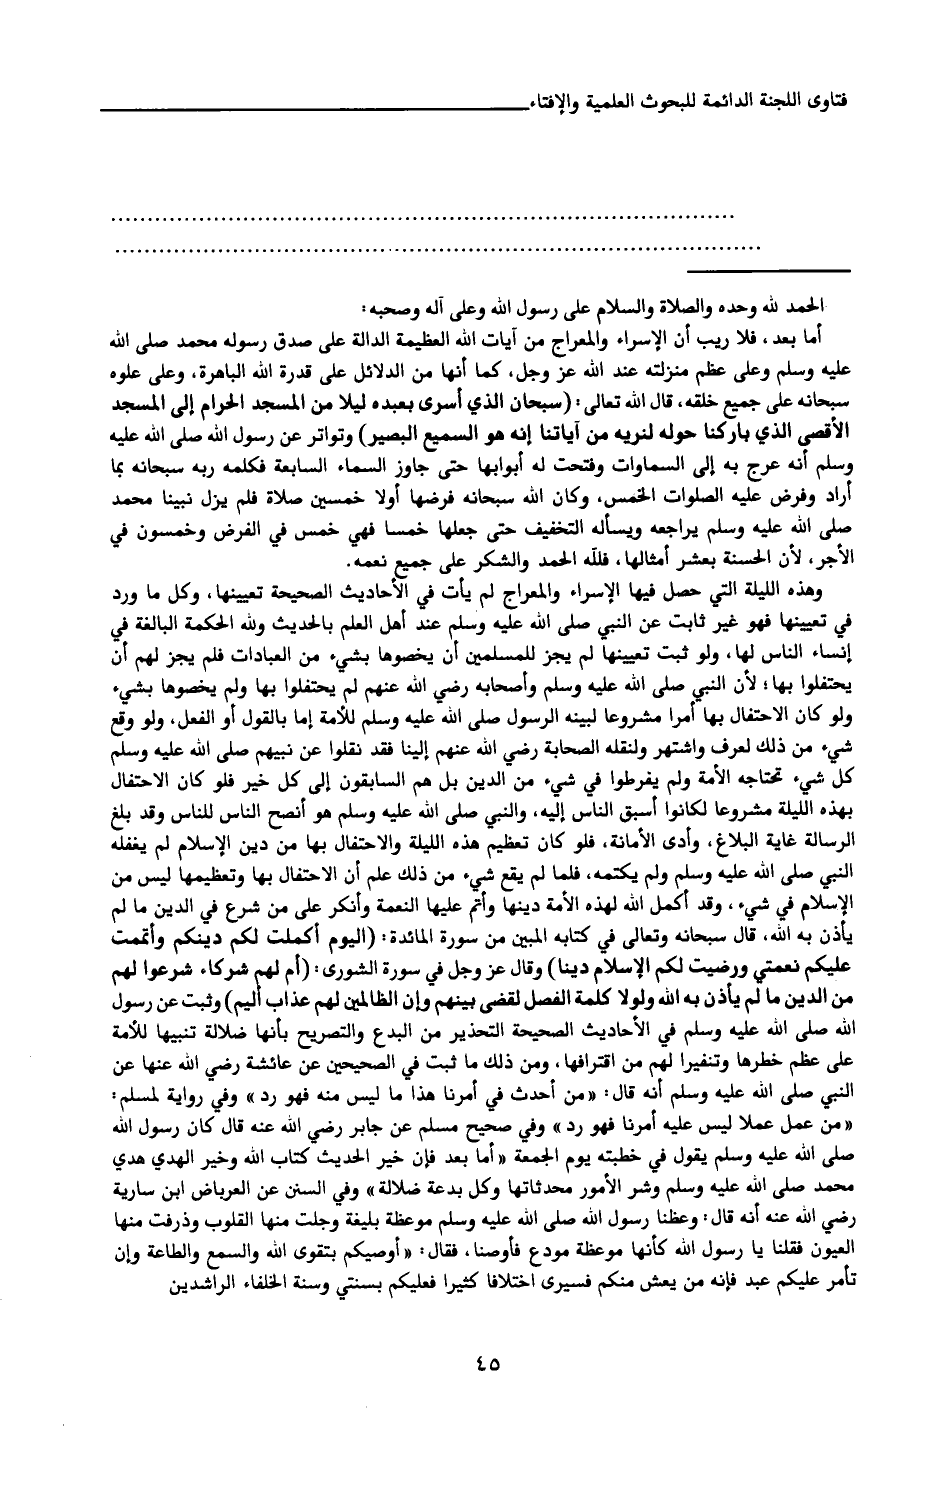 فتاوى اللجنة الدائمة للبحوث العلمية والإفتاء
الحمد لله وحده والصلاة والسلام على رسول الله وعلى آله وصحبه:
أما بعد، فلا ريب أن الإسراء والمعراج من آيات الله العظيمة الدالة على صدق رسوله محمد صلى الله
عليه وسلم وعلى عظم منزلته عند الله عز وجل، كما أنها من الدلائل على قدرة الله الباهرة، وعلى علوه
سبحانه على جميع خلقه، قال الله تعالى: (سبحان الذي أسرى بعبده ليلا من المسجد الحرام إلى المسجد
الأقصى الذي باركنا حوله لنريه من آياتنا إنه هو السميع البصير) وتواتر عن رسول الله صلى الله عليه
وسلم أنه عرج به إلى السماوات وفتحت له أبوابها حتى جاوز السماء السابعة فكلمه ربه سبحانه بما
أراد وفرض عليه الصلوات الخمس، وكان الله سبحانه فرضها أولا خمسين صلاة فلم يزل نبينا محمد
صلى الله عليه وسلم يراجعه ويسأله التخفيف حتى جعلها خمسا فهي خمس في الفرض وخمسون في
الأجر، لأن الحسنة بعشر أمثالها، فلله الحمد والشكر على جميع نعمه.
وهذه الليلة التي حصل فيها الإسراء والمعراج لم يأت في الأحاديث الصحيحة تعيينها، وكل ما ورد
في تعيينها فهو غير ثابت عن النبي صلى الله عليه وسلم عند أهل العلم بالحديث ولله الحكمة البالغة في
إنساء الناس لها، ولو ثبت تعيينها لم يجز للمسلمين أن يخصوها بشيء من العبادات فلم يجز لهم أن
يحتفلوا بها؛ لأن النبي صلى الله عليه وسلم وأصحابه رضي الله عنهم لم يحتفلوا بها ولم يخصوها بشيء
ولو كان الاحتفال بها أمرا مشروعا لبينه الرسول صلى الله عليه وسلم للأمة إما بالقول أو الفعل، ولو وقع
شيء من ذلك لعرف واشتهر ولنقله الصحابة رضي الله عنهم إلينا فقد نقلوا عن نبيهم صلى الله عليه وسلم
كل شيء تحتاجه الأمة ولم يفرطوا في شيء من الدين بل هم السابقون إلى كل خير فلو كان الاحتفال
بهذه الليلة مشروعا لكانوا أسبق الناس إليه، والنبي صلى الله عليه وسلم هو أنصح الناس للناس وقد بلغ
الرسالة غاية البلاغ، وأدى الأمانة، فلو كان تعظيم هذه الليلة والاحتفال بها من دين الإسلام لم يغفله
النبي صلى الله عليه وسلم ولم يكتمه، فلما لم يقع شيء من ذلك علم أن الاحتفال بها وتعظيمها ليس من
الإسلام في شيء، وقد أكمل الله لهذه الأمة دينها وأتم عليها النعمة وأنكر على من شرع في الدين ما لم
يأذن به الله، قال سبحانه وتعالى في كتابه المبين من سورة المائدة: (اليوم أكملت لكم دينكم وأتممت
عليكم نعمتي ورضيت لكم الإسلام دينا) وقال عز وجل في سورة الشورى: (أم لهم شركاء شرعوا لهم
من الدين ما لم يأذن به الله ولولا كلمة الفصل لقضى بينهم وإن الظالمين لهم عذاب أليم) وثبت عن رسول
الله صلى الله عليه وسلم في الأحاديث الصحيحة التحذير من البدع والتصريح بأنها ضلالة تنبيها للأمة
على عظم خطرها وتنفيرا لهم من اقترافها، ومن ذلك ما ثبت في الصحيحين عن عائشة رضي الله عنها عن
النبي صلى الله عليه وسلم أنه قال: «من أحدث في أمرنا هذا ما ليس منه فهو رد» وفي رواية لمسلم:
«من عمل عملا ليس عليه أمرنا فهو رد» وفي صحيح مسلم عن جابر رضي الله عنه قال كان رسول الله
صلى الله عليه وسلم يقول في خطبته يوم الجمعة «أما بعد فإن خير الحديث كتاب الله وخير الهدي هدي
محمد صلى الله عليه وسلم وشر الأمور محدثاتها وكل بدعة ضلالة» وفي السنن عن العرباض ابن سارية
رضي الله عنه أنه قال: وعظنا رسول الله صلى الله عليه وسلم موعظة بليغة وجلت منها القلوب وذرفت منها
العيون فقلنا يا رسول الله كأنها موعظة مودع فأوصنا، فقال: «أوصيكم بتقوى الله والسمع والطاعة وإن
تأمر عليكم عبد فإنه من يعش منكم فسيرى اختلافا كثيرا فعليكم بسنتي وسنة الخلفاء الراشدين
٤٥